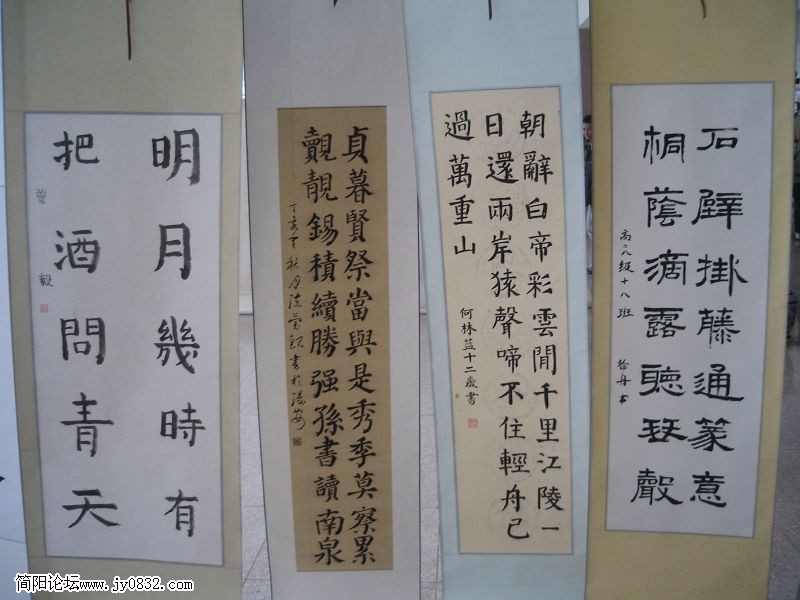 明月幾時有
把酒問青天
曾毅
貞暮賢祭當與是秀季莫察累
覿靚錫積續勝强孫書讀南泉
丁亥年秋月 書於陽安
朝辭白帝彩雲閒千里江陵一
日還兩岸猿聲啼不住輕舟已
過萬重山
何林蓝十二歲書
石壁掛藤通篆意
桐蔭滴露聽琴聲
高〇八级十八班
徐丹书
简阳论坛www.jy0832.com